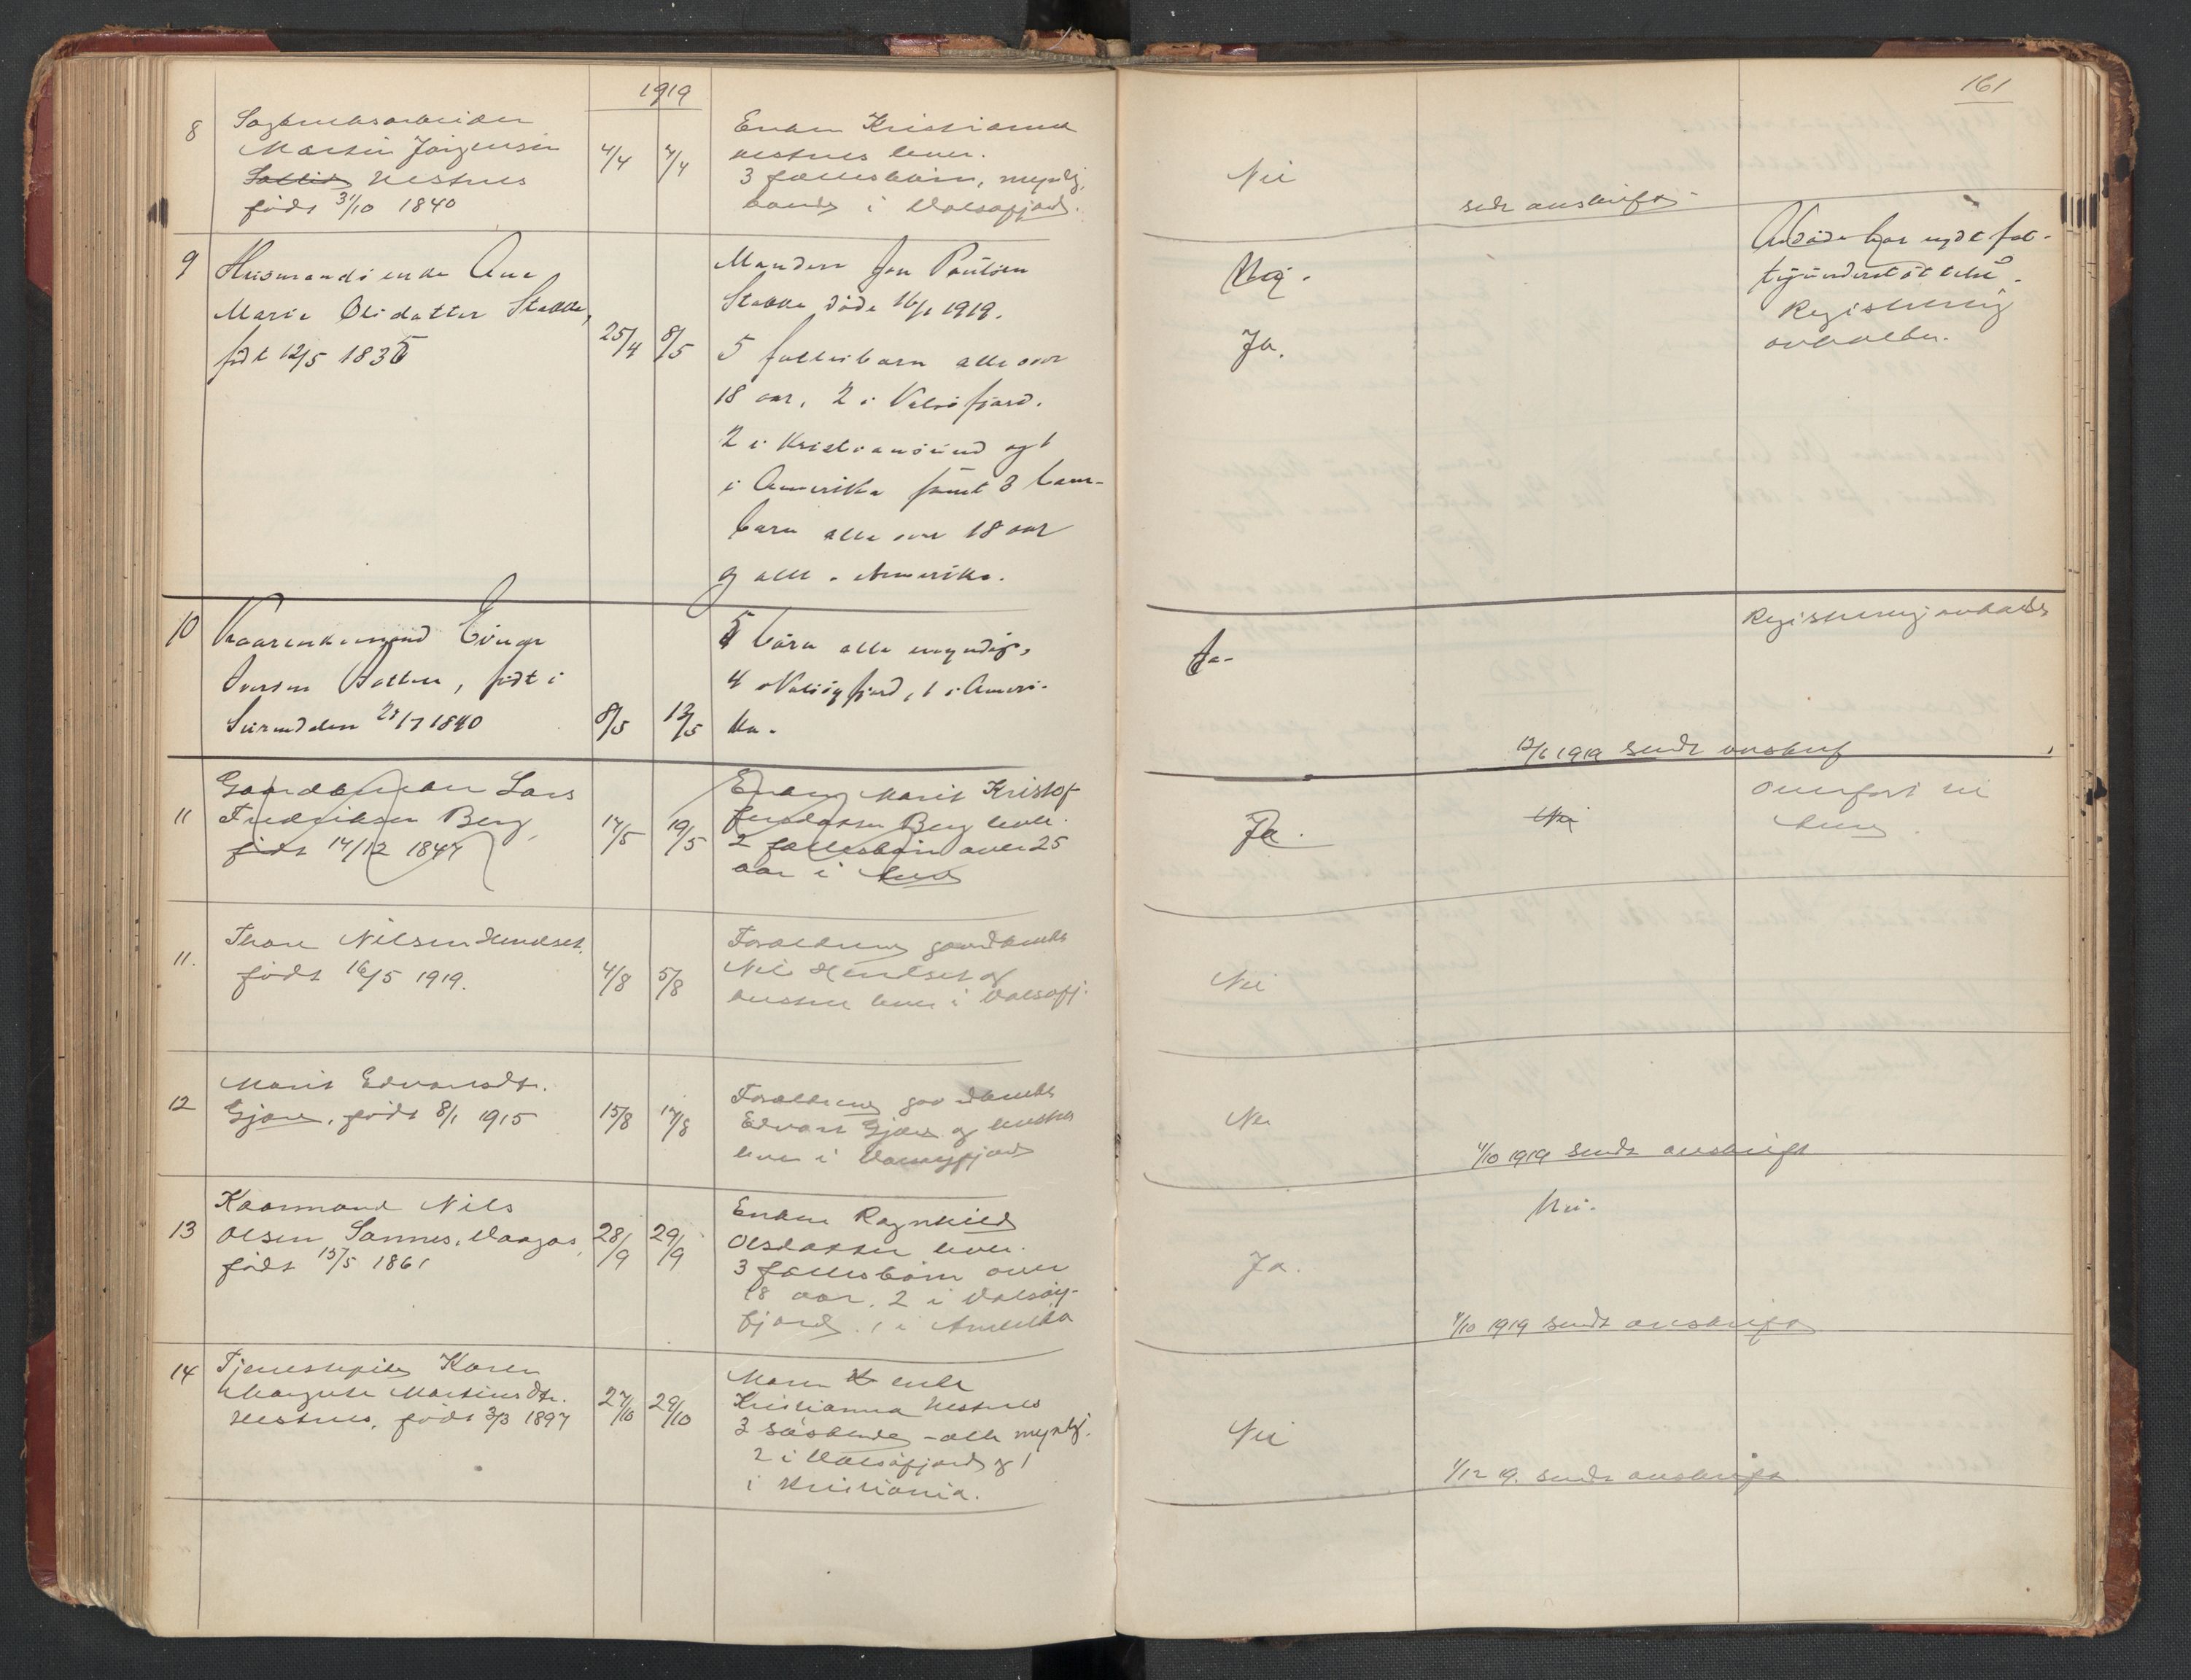 1919
161
8
Sagbruksarbeider
Martin Jørgensen
Sollid Nestnes
født 31/10 1840
4/4
7/4
Enken Kristianna
Nestnes lever.
3 fællesbørn, myndig,
i Valsøfjord.
Nei
sendt avskrift
9
Husmandsenke Ane
Marie Olsdatter Stakke,
født 12/5 1835
25/4
8/5
Manden Jon Paulsen
Stakke døde 16/1 1919.
5 fællesbarn alle over
18 aar, 2 i Valsøfjord.
2 i Kristiansund og 1
i Amerika samt 3 barne-
barn alle over 18 aar
og alle i Amerika.
Nej.
Ja.
Avdøde har nydt fat-
tigunderstøttelse.
Registrering
avholdes.
10
Kaarenkemand Einar
Iversen, født i
Surendalen 28/7 1840
8/5
12/5
5 børn alle myndige,
4 i Valsøyfjord, 1 i Ameri-
ka.
Ja.
Registrering avholdes
12/6 1919 sendt avskrift
11
Gaardmann Lars
Fredriksen Berg,
født 14/12 1847
17/5
19/5
Enken Marit Kristof
fersdatter Berg lever.
2 fællesbørn over 25
aar i
Ja.
Nei
Overført til
11.
Thore Nilsen Hendset.
født 16/5 1919.
4/8
5/8
Forældrene gaardbruker
Nils Hendset og
hustru lever i Valsøfj.
Nei
12
Marit Edvardsdt.
Gjøra, født 8/1 1915
15/8
17/8
Forældrene gaardbruker
Edvart Gjøra og hustru
lever i Valsøyfjord
Nei
1/10 1919 sendt avskrift
13
Kaarmand Nils
Olsen Sannes, Vaagos,
født 15/5 1861
28/9
29/9
Enken Ragnhild
Olsdatter lever.
3 fællesbørn over
18 aar, 2 i Valsøy-
fjord. 1 i Amerika
Ja.
Nei.
1/10 1919 sendt avskrift
14
Tjenestepike Karen
Margrete Martinsdtr.
Nestnes, født 3/3 1897
27/10
29/10
Moren enke
Kristianna Nestnes
3 søskende - alle myndig.
2 i Valsøfjord og 1
i Kristiania.
Nei
1/12 19. sendt avskrift